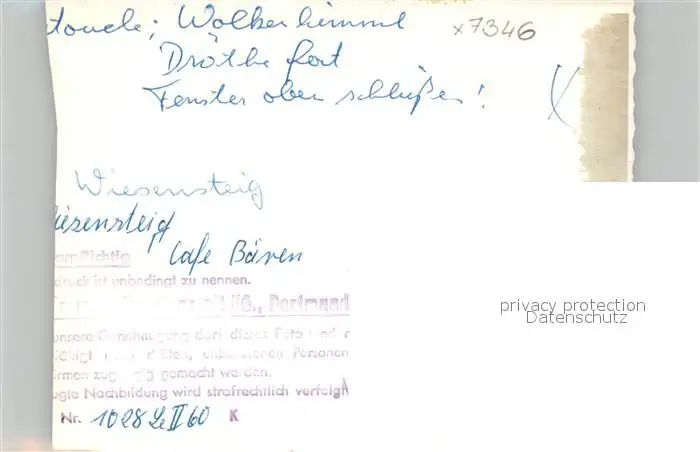 touche; Wolkenhimmel x7346
Dräthe fort
Fenster oben schließen!
Wiesensteig
iesensteig
Cafe Bären
druck ist unbedingt zu nennen.
KG., Dortmund
unsere Genehmigung darf dieses Foto
Personen
irmen zugängig gemacht werden.
ugte Nachbildung wird strafrechtlich verfolgt
Nr. 1028 Le II 60 K
privacy protection
Datenschutz